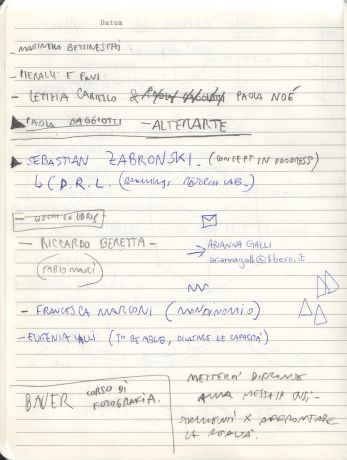 Datum
- MARINELLA BETTINESCHI
- MERALLI E FAVI
- LETIZIA CARIELLO & PAOLA NOÉ
PAOLA GAGGIOTTI - ALTERARTE
SEBASTIAN ZABRONSKI. (CONCEPT IN PROGRESS)
↳ (D.R.L. (DRAWINGS RESEARCH LAB.)
- RICCARDO BERETTA -
→ ARIANNA GALLI
(FABIO MAURI)
- FRANCESCA MARCONI (MONDINOMIO)
- EUGENIA VALLI (TO BE ABLE, DILATARE LE CAPACITÀ)
BAUER CORSO DI
FOTOGRAFIA.
METTERSI DIFRONTE
ALLA
STRUMENTI X AFFRONTARE
LA REALTÀ.